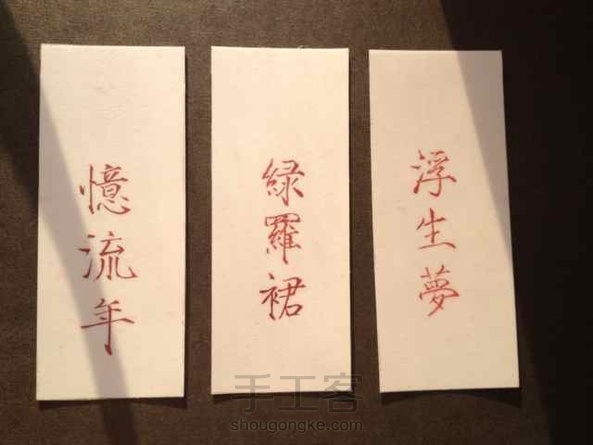 憶流年
綠羅裙
浮生夢
手工客
shougongke.com